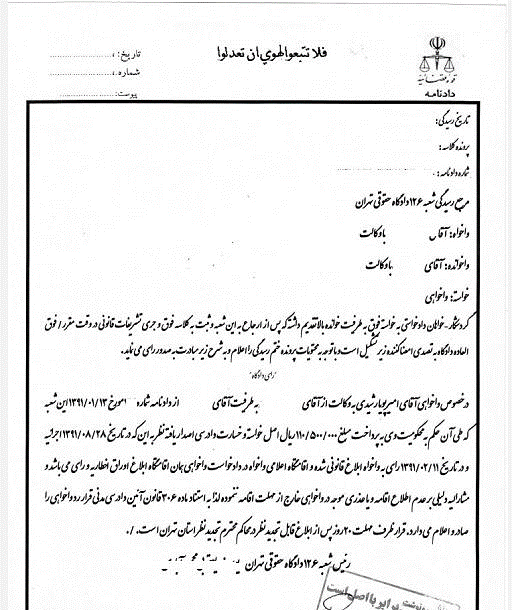 فلا تتبعوا لهوي ان تعدلوا
تاریخ:
شماره:
پیوست:
قوه قضائیه
دادنامه
تاریخ رسیدگی:
پرونده کلاسه:
شماره دادنامه:
مرجع رسیدگی شعبه ۱۲۶ دادگاه حقوقی تهران
واخواه: آقای با وکالت
واخوانده: آقای با وکالت
خواسته: واخواهی
گردشکار- خواهان دادخواستی به خواسته فوق به طرفیت خوانده بالا تقدیم داشته که پس از ارجاع به این شعبه و ثبت به کلاسه فوق و جری تشریفات قانونی در وقت مقرر / فوق
العاده دادگاه به تصدی امضاکننده زیر تشکیل است و با توجه به محتویات پرونده ختم رسیدگی را اعلام و به شرح زیر مبادرت به صدور رای می نماید.
"رای دادگاه"
در خصوص واخواهی آقای امیر پویا رشیدی به وکالت از آقای به طرفیت آقای از دادنامه شماره مورخ ۱۳۹۱/۰۱/۱۳ این شعبه
که طی آن حکم به محکومیت وی به پرداخت مبلغ ۱۱۰/۵۰۰/۰۰۰ ریال اصل خواسته و خسارت دادرسی اصدار یافته نظر به این که در تاریخ ۱۳۹۱/۰۸/۲۸ اجرائیه
و در تاریخ ۱۳۹۱/۰۲/۱۱ رای به واخواه ابلاغ قانونی شده و اقامتگاه اعلامی واخواه در دادخواست واخواهی همان اقامتگاه ابلاغ اوراق اخطاریه و رای می باشد و
مشارالیه دلیلی بر عدم اطلاع اقامه و یا عذری موجه در واخواهی خارج از مهلت اقامه ننموده لذا به استناد ماده ۳۰۶ قانون آئین دادرسی مدنی قرار رد واخواهی را
صادر و اعلام می دارد. قرار ظرف مهلت ۲۰ روز پس از ابلاغ قابل تجدیدنظر در محاکم محترم تجدیدنظر استان تهران است. /.
رئیس شعبه ۱۲۶ دادگاه حقوقی تهران
برابر با اصل است